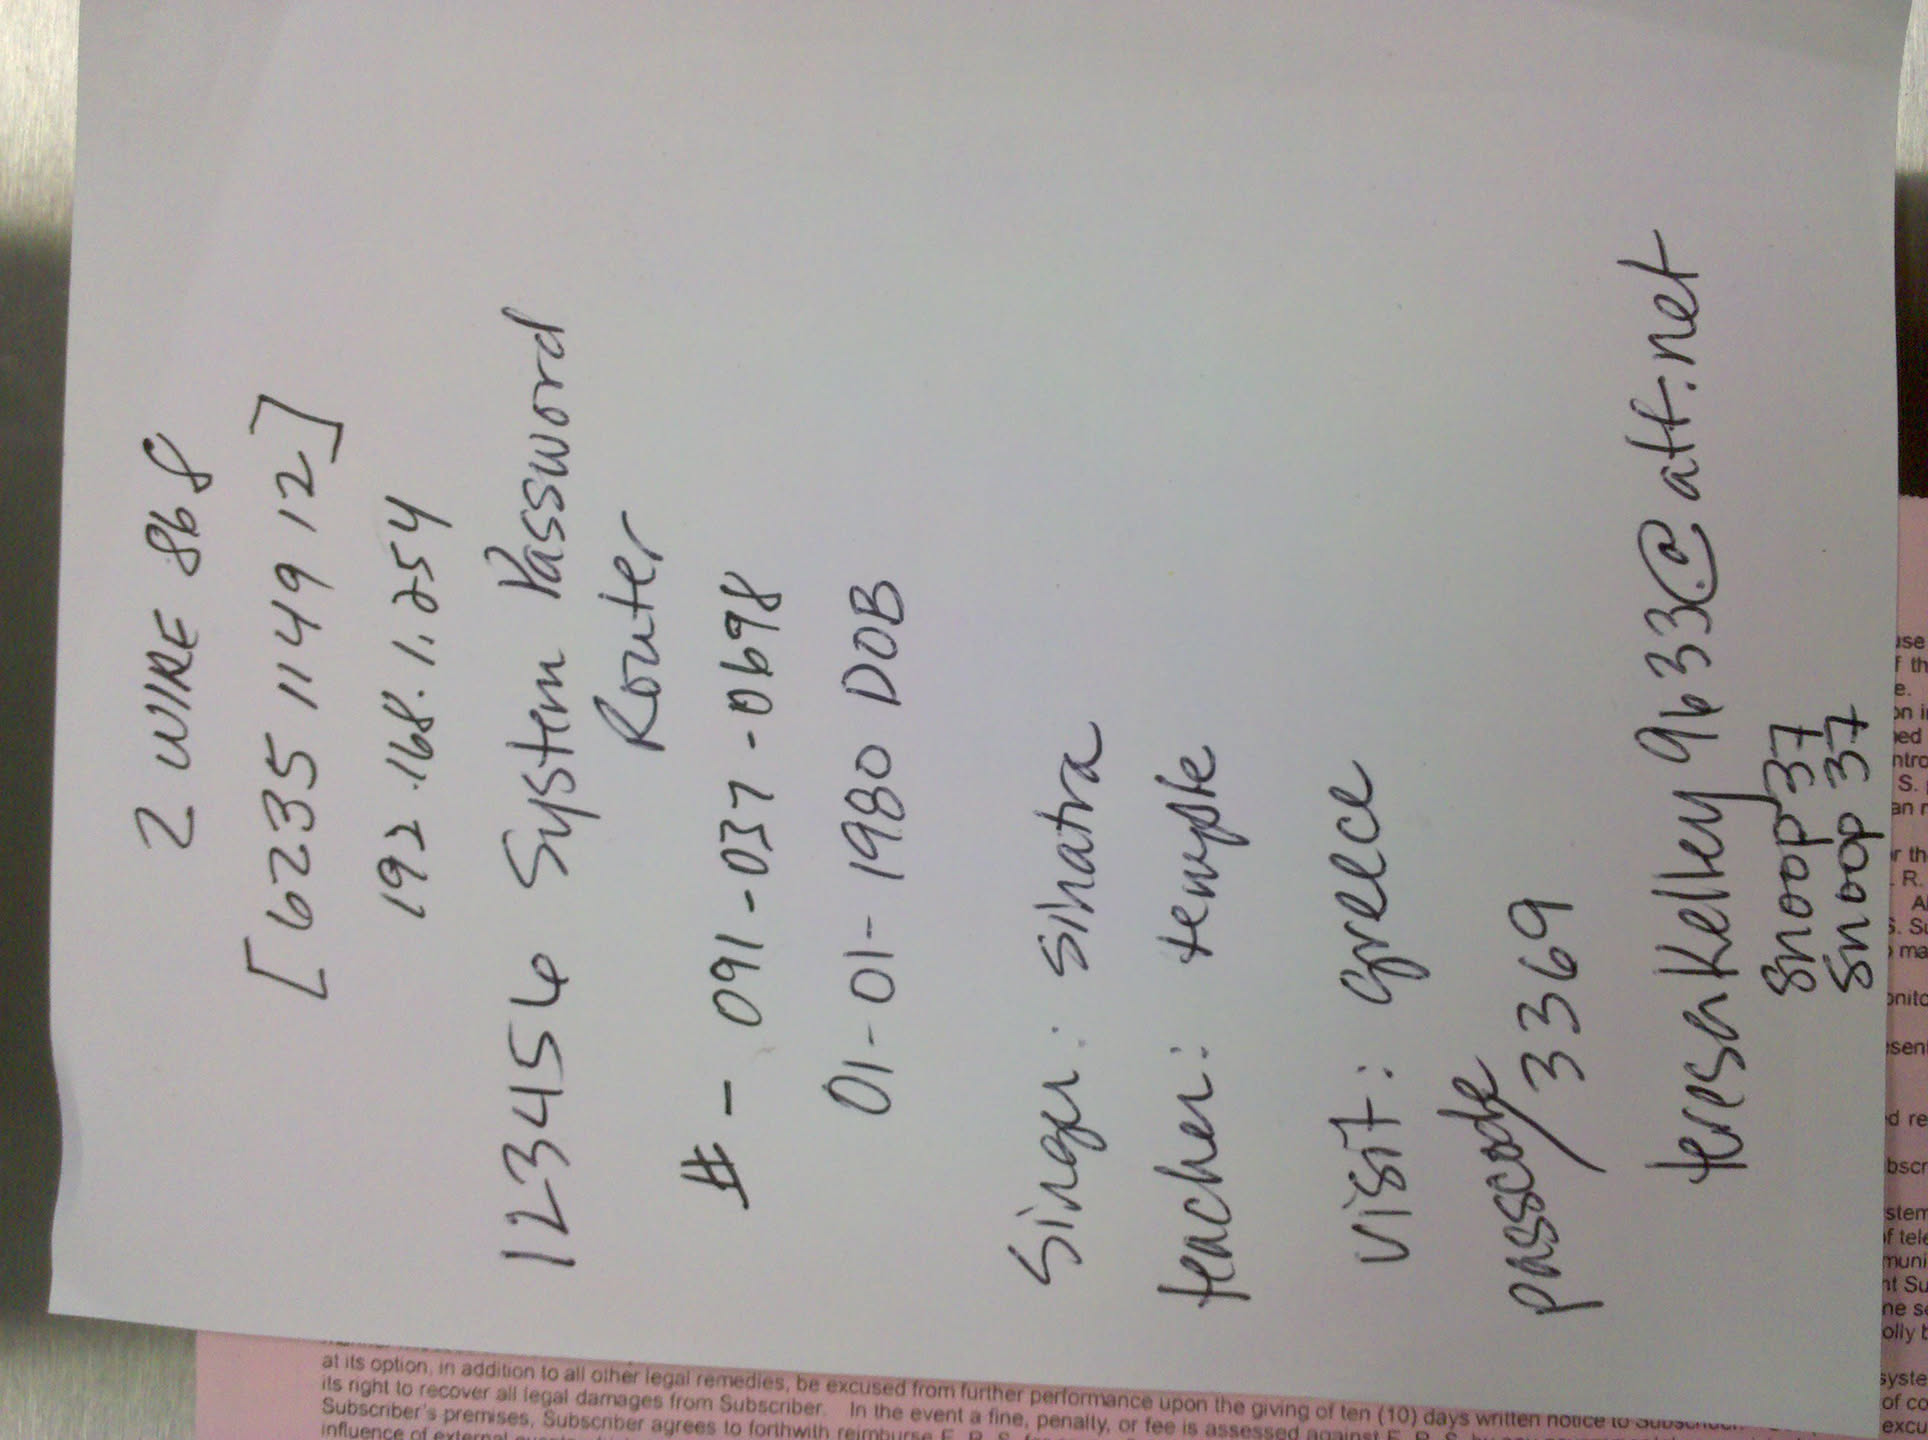 2 WIRE 868
[6235 1149 12]
192.168.1.254
123456 System Password
Router
# - 091-037-0698
01-01-1980 DOB
Singer: Sinatra
teacher: temple
visit: greece
passcode/3369
teresakelley9633@att.net
snoop37
snoop37
at its option, in addition to all other legal remedies, be excused from further performance upon the giving of ten (10) days written notice to
its right to recover all legal damages from Subscriber. In the event a fine, penalty, or fee is assessed against
Subscriber's premises, Subscriber agrees to forthwith reimburse E. R. S.
influence of external